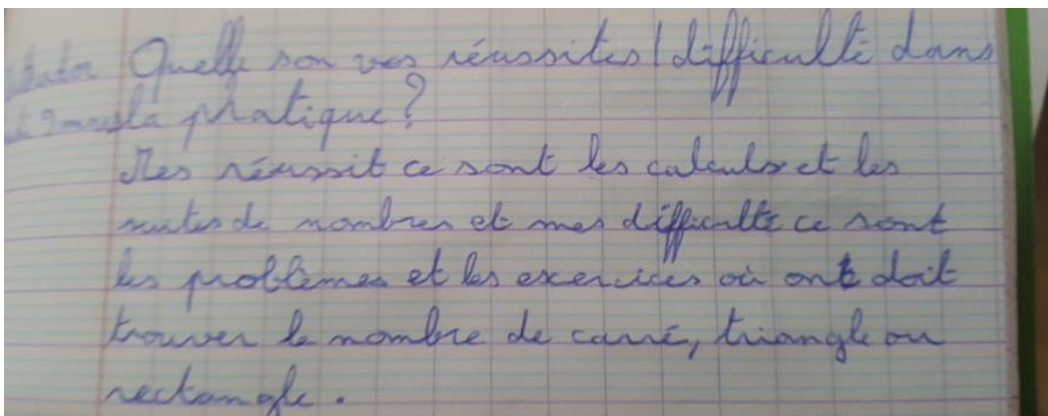 Quelle son vos réussites / difficulté dans
la pratique ?
Mes réussit ce sont les calculs et les
suites de nombres et mes difficulté ce sont
les problèmes et les exercices où ont doit
trouver le nombre de carré, triangle ou
rectangle.